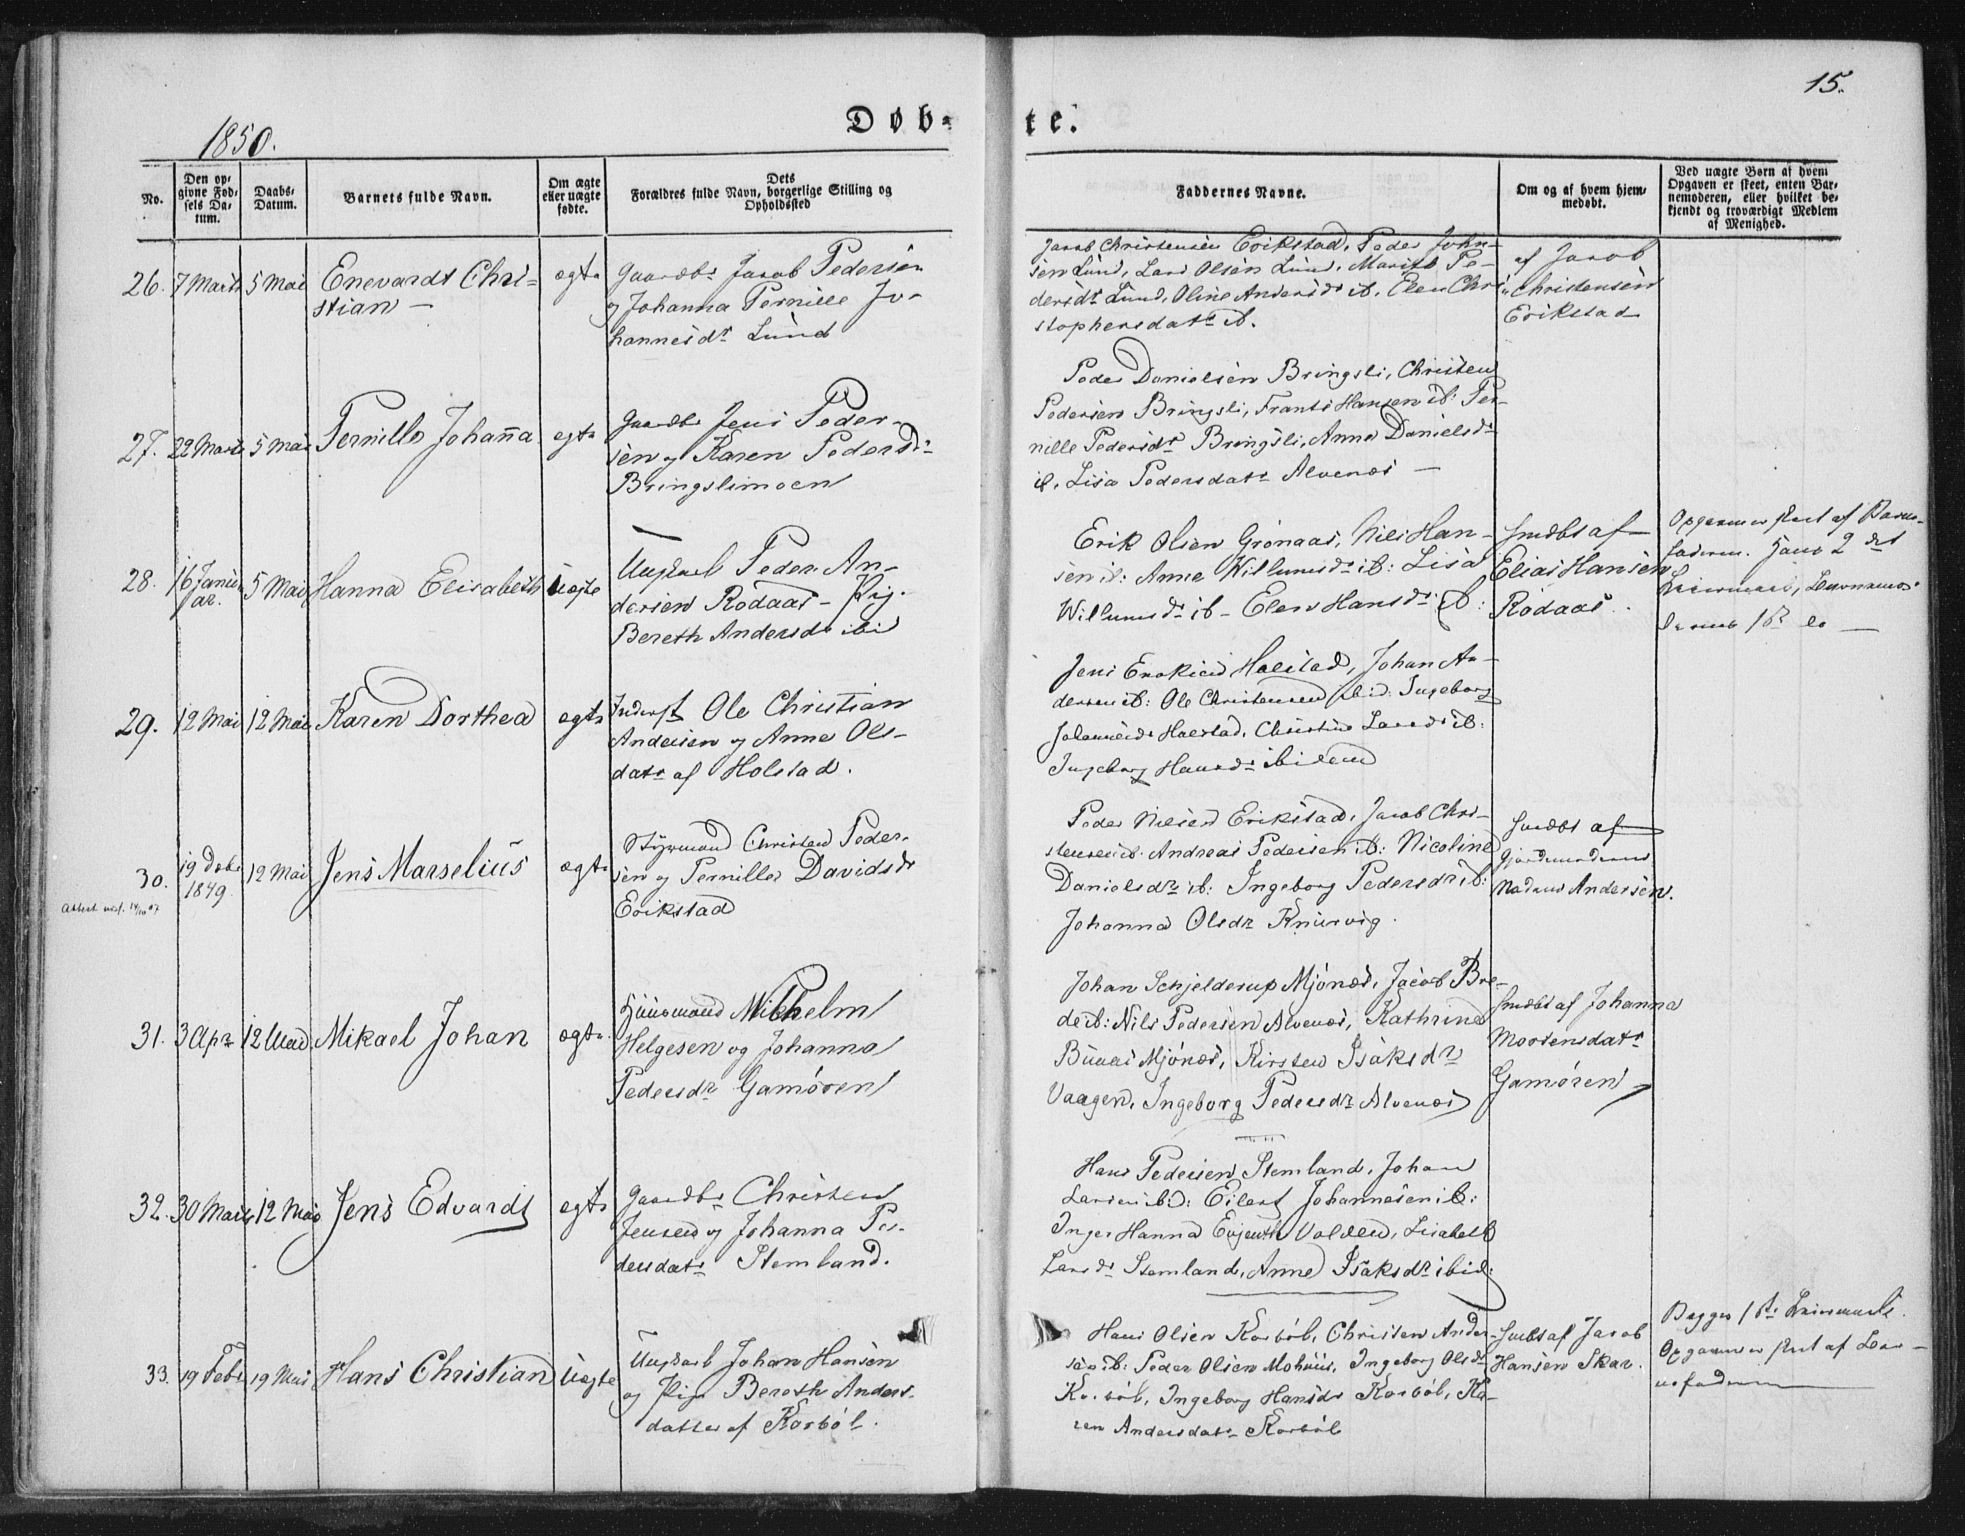 15.
1850.
Døb-
te.
No.
Den op-
givne Fød-
sels Da-
tum.
Daabs-
Datum.
Barnets fulde Navn.
Om ægte
eller uægte
fødte.
Dets
Forældres fulde Navn, borgerlige Stilling og
Opholdssted
Faddernes Navne.
Om og af hvem hjem-
medøbt.
Ved uægte Børn af hvem
Opgaven er skeet, enten Bar-
nemoderen, eller hvilket be-
kjendt og troværdigt Medlem
af Menighed.
26. 7 Marts 5 Mai Enevardt Chri-
stian —
ægte
Gaardbr Jacob Pedersen
og Johanna Pernille Jo-
hannesdr Lund
Jacob Christensen Erikstad, Peder John-
sen Lund, Lars Olsen Lund, Marith Pe-
dersdr Lund, Oline Andersdr ib. Elen Chri-
stophersdatr ib.
af Jacob
Christensen
Erikstad
27. 22 Marts 5 Mai Pernille Johanna
egte
Gaardbr Jens Peder-
sen og Karen Pedersdr
Bringslimoen
Peder Danielsen Bringsli, Christen
Pedersen Bringsli, Frants Hansen ib: Per-
nille Pedersdr Bringsli, Anna Danielsdr
ib, Lisa Pedersdatr Alvenes —
28. 16 Janu-
ar. 5 Mai Hanna Elisabeth
Uegte
Ungkarl Peder An-
dersen Rødaas – Pig.
Bereth Andersdr ibid
Erik Olsen Grønaas, Nils Han-
sen ib: Anne Willumsdr ib: Lisa
Willumsdr ib – Elen Hansdr ib:
Smdbt af
Elias Hansen
Rødaas.
Opgaven er skeet af Barne-
faderen. Hans 2 det
Leiermaal,
1st
29. 12 Mai 12 Mai Karen Dorthea
egte
Inderst Ole Christian
Andersen og Anne Ols-
datr af Holstad.
Jens Holstad, Johan An-
dersen ib: Ole Christensen ibid: Ingeborg
Johannesdr Holstad, Christine Larsdr ib:
Ingeborg Hansdr ibidem
30. 19 Dcbr
1849. 12 Mai Jens Marselius
ægte
Attest
Styrmand Christen Peder-
sen og Pernille Davidsdr
Erikstad
Peder Nilsen Erikstad, Jacob Chri-
stensen ib. Andreas Pedersen ib: Nicoline
Danielsdr ib: Ingeborg Pedersdr ib:
Johanna Olsdr Knurvig.
Smdbt af
Gjordemoderen
Andersen.
31. 3 Apr 12 Mai Mikael Johan
ægte
Huusmand Wilhelm
Helgesen og Johanna
Pedersdr Gamøren
Johan Schjelderup Mjønes, Jacob Bre-
de ib: Nils Pedersen Alvenes, Kathrina
Buaas Mjønes, Kirsten Isaksdr
Vaagen, Ingeborg Pedersdr Alvenes
Smdbt af Johanna
Mortensdatr
Gamøren
32. 30 Marts 12 Mai Jens Edvardt
egte
Gaardbr Christen
Jensen og Johanna Pe-
dersdatr Stemland.
Hans Pedersen Stemland, Johan
Larsen ibd: Eilert Johannesen ib:
Inger Hanna Evjenth Volden, Lisabeth
Larsdr Stemland, Anne Isaksdr ibid:
33. 19 Febr 19 Mai Hans Christian
Uegte
Ungkarl Johan Hansen
og Pige Bereth Anders-
datter af Korbøl.
Hans Olsen Korbøl, Christen Ander-
sen ib: Peder Olsen Mohuus, Ingeborg Olsdr
Korbøl, Ingeborg Hansdr Korbøl, Ka-
ren Andersdatr Korbøl
Smdbt af Jacob
Hansen Skar.
Begges 1ste Leiermaal.
Opgaven er skeet af Bar-
nefaderen